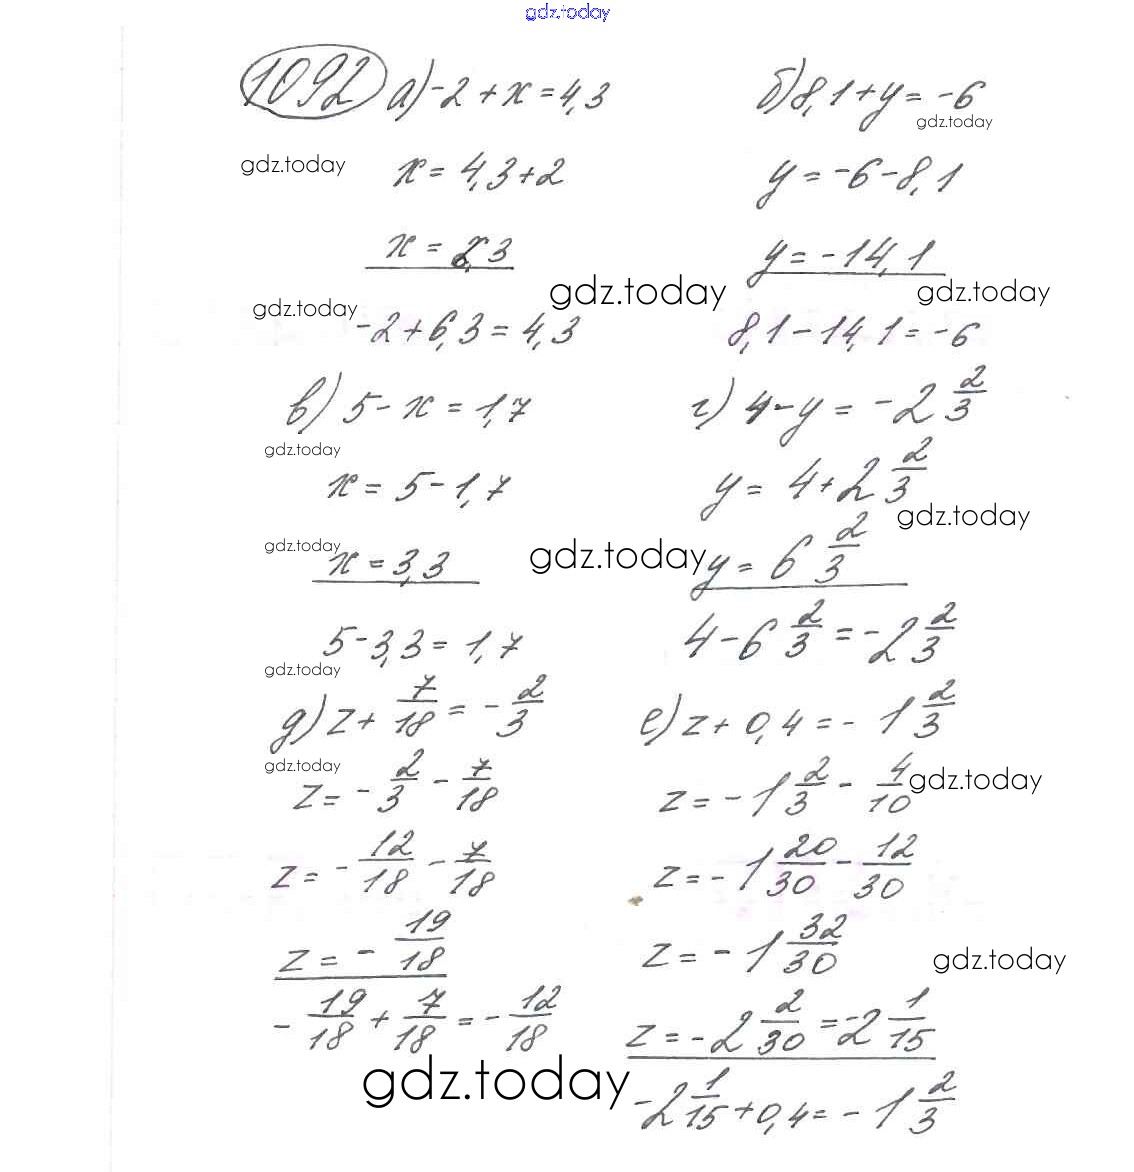 gdz.today
1092 а) -2 + x = 4,3
б) 8,1 + y = -6
gdz.today
gdz.today
x = 4,3 + 2
y = -6 - 8,1
x = 6,3
y = -14,1
gdz.today
gdz.today
gdz.today
-2 + 6,3 = 4,3
8,1 - 14,1 = -6
в) 5 - x = 1,7
г) 4 - y = -2 2/3
gdz.today
x = 5 - 1,7
y = 4 + 2 2/3
gdz.today
gdz.today
x = 3,3
gdz.today
y = 6 2/3
5 - 3,3 = 1,7
4 - 6 2/3 = -2 2/3
gdz.today
д) z + 7/18 = - 2/3
е) z + 0,4 = - 1 2/3
gdz.today
z = - 2/3 - 7/18
z = - 1 2/3 - 4/10
gdz.today
z = - 12/18 - 7/18
z = - 1 20/30 - 12/30
z = - 19/18
z = - 1 32/30
gdz.today
- 19/18 + 7/18 = - 12/18
z = - 2 2/30 = -2 1/15
gdz.today
-2 1/15 + 0,4 = - 1 2/3